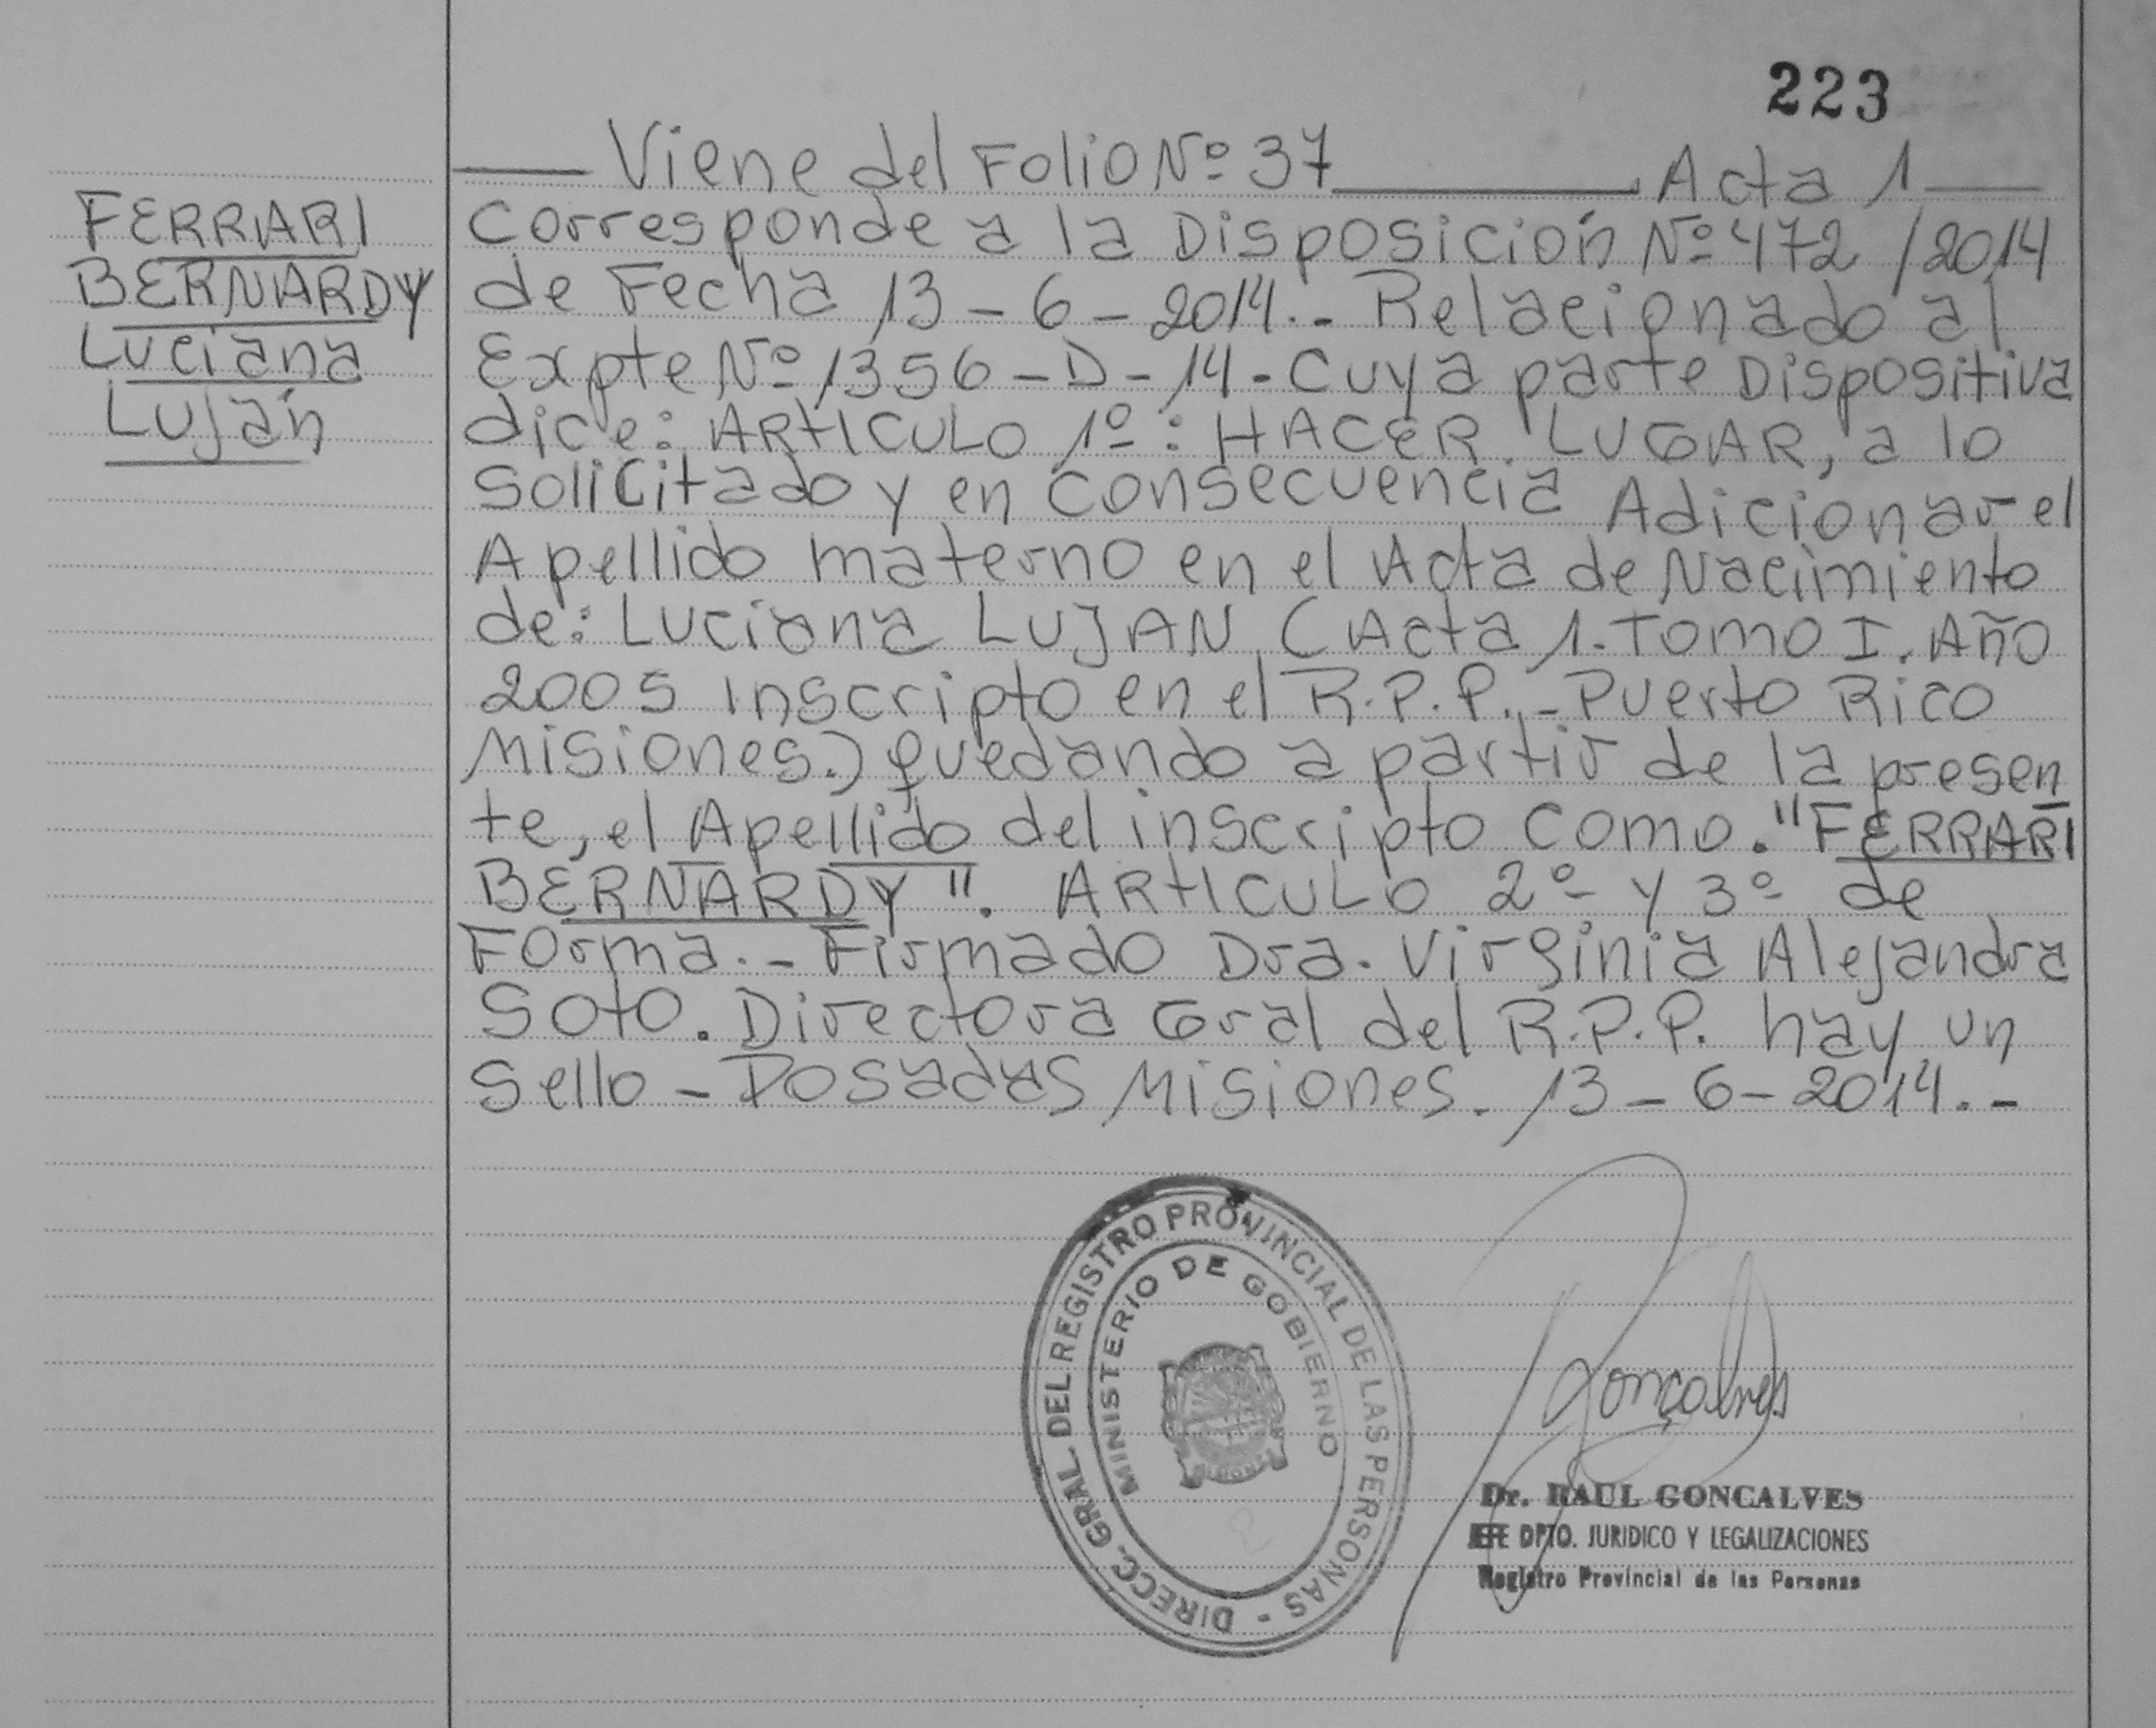 223
Viene del Folio Nº 37 Acta 1
FERRARI
BERNARDY
Luciana
Luján
Corresponde a la Disposición Nº 472 /2014
de Fecha 13 - 6 - 2014.- Relacionado al
Expte Nº 1356 - D - 14 - Cuya parte Dispositiva
dice: ARtICULO 1º: HACER LUGAR, a lo
solicitado y en consecuencia Adicionar el
Apellido materno en el Acta de Nacimiento
de: Luciana LUJAN (Acta 1. Tomo I. Año
2005 Inscripto en el R.P.P.- Puerto Rico
Misiones.) quedando a partir de la presen
te, el Apellido del inscripto como. "FERRARI
BERNARDY". ARtICULO 2º y 3º de
Forma.- Firmado Dra. Virginia Alejandra
Soto. Directora Gral del R.P.P. hay un
Sello - Posadas Misiones. 13 - 6 - 2014.-
DIRECC. GRAL DEL REGISTRO PROVINCIAL DE LAS PERSONAS -
MINISTERIO DE GOBIERNO
Gonçalves
Dr. RAUL GONCALVES
JEFE DPTO. JURIDICO Y LEGALIZACIONES
Registro Provincial de las Personas